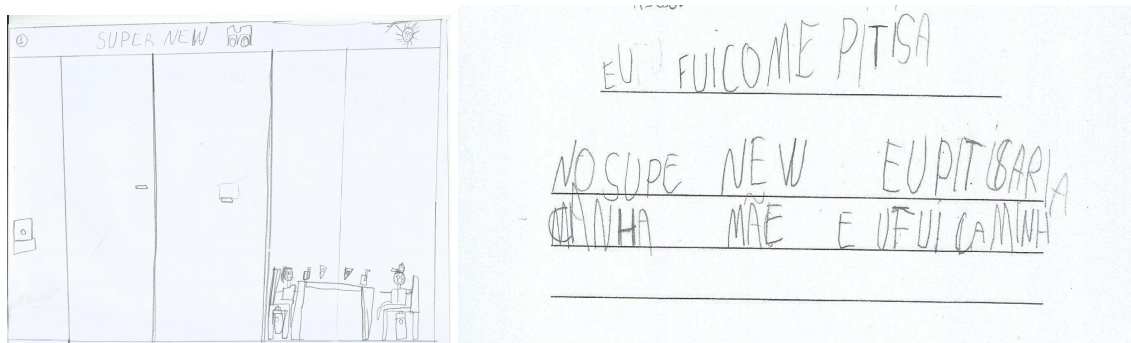 1
SUPER NEW
EU FUICOME PITISA
NO SUPE NEW EUPITISARIA
CANHA MÃE E UFUI CAMINH